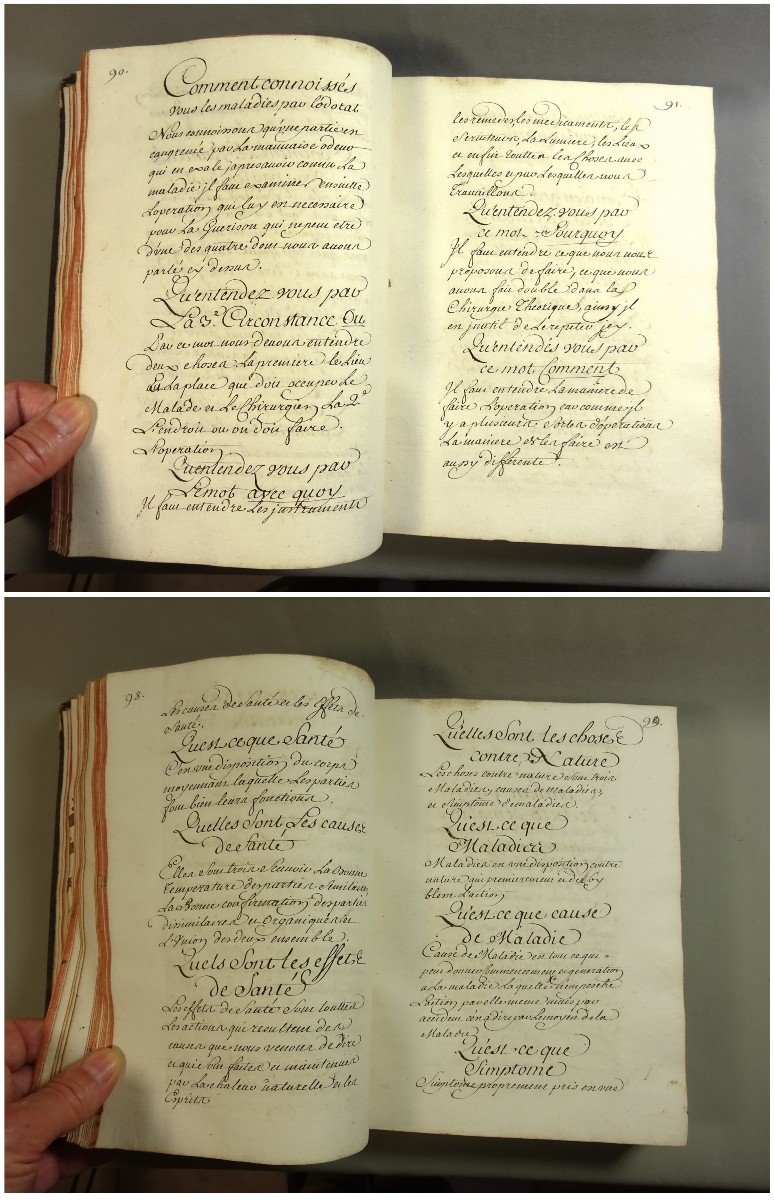 90.
Comment connoissés
vous les maladies par lodorat
Nous connoissons qu'une partie est
cangrenée par la mauuaise odeur
qui en exale japres auoir connu La
maladie jl faut examiner ensuitte
Loperation qui luy est necessaire
pour La Guerison qui ne peut etre
d'une des quatre dont nous auons
parlé cy dessus.
Qu'entendez vous par
La 3e Circonstance Ou
Par ce mot nous deuons entendre
deux choses La premiere le Lieu
ou La place que doit occuper Le
Malade et Le Chirurgien La 2e
L'endroit ou on doit faire
L'operation
Qu'entendez vous par
Le mot avec quoy
Jl faut entendre Les jnstruments
91.
les remedes les medicaments, les
Seruiteurs, La Lumiere, les Lieux
et enfin touttes les choses auec
Lesquelles et par Lesquelles nous
Trauaillons
Qu'entendez vous par
ce mot Pourquoy
Jl faut entendre ce que nous nous
proposons de faire, ce que nous
auons fait double dans la
Chirurgie Theorique, ainsy jl
est jnutil de Le repeter jcy.
Qu'entendés vous par
ce mot Comment
Jl faut entendre La maniere de
faire L'operation car comme jl
y a plusieurs sortes d'operations
La maniere de les faire est
aussy differente.
98.
Les causes de Santé et les Effets de
Santé.
Qu'est ce que Santé
C'est vne disposition du corps
moyennant laquelle Les parties
font bien leurs fonctions.
Quelles Sont Les causes
de Santé
Elles Sont trois Scauoir La Bonne
Temperature des parties Similaires
La Bonne confirmation des parties
dissimilaires et Organiques et
L'Vnion des deux ensemble.
Quels Sont les effets
de Santé
Les effets de Santé Sont touttes
Les actions qui resultent des
causes que nous venons de dire
et qui Sont faites et maintenues
par La chaleur naturelle et les
Esprits
99.
Quelles Sont les choses
contre Nature
Les choses contre nature Sont trois
Maladies, causes de maladies,
et Simptome de maladies.
Qu'est ce que
Maladie
Maladie est vne disposition contre
nature qui premierement et de Soy
blesse L'action
Qu'est ce que cause
de Maladie
Cause de Maladie est tout ce qui
peut donner Commencement et generation
a La maladie Laquelle n'empesche
L'action par elle meme mais par
accident c'est a dire par Le moyen de La
Maladie
Qu'est ce que
Simptome
Simptome proprement pris est vne